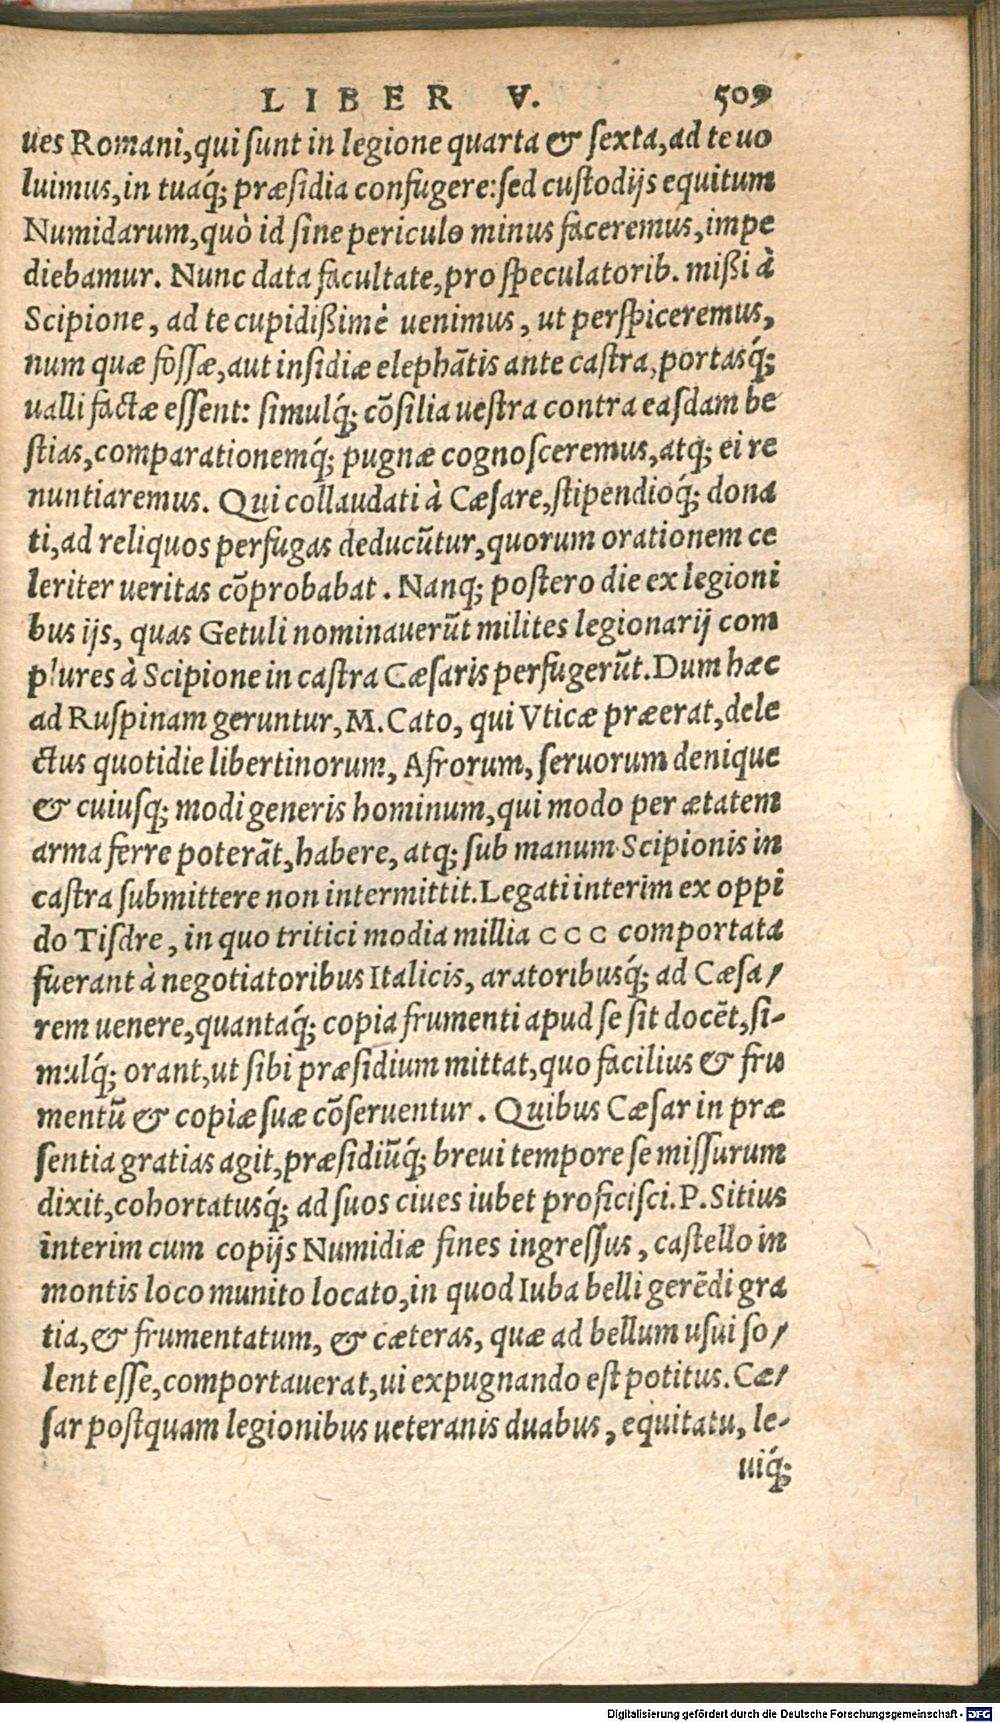 LIBER V. 509
ues Romani, qui sunt in legione quarta & sexta, ad te uo
luimus, in tuaq́; præsidia confugere: sed custodijs equitum
Numidarum, quò id sine periculo minus faceremus, impe
diebamur. Nunc data facultate, pro speculatorib. mißi à
Scipione, ad te cupidißimè uenimus, ut perspiceremus,
num quæ fossæ, aut insidiæ elephãtis ante castra, portasq́;
ualli factæ essent: simulq́; cõsilia uestra contra easdam be
stias, comparationemq́; pugnæ cognosceremus, atq; ei re
nuntiaremus. Qui collaudati à Cæsare, stipendioq́; dona
ti, ad reliquos perfugas deducũtur, quorum orationem ce
leriter ueritas cõprobabat. Nanq; postero die ex legioni
bus ijs, quas Getuli nominauerũt milites legionarij com
plures à Scipione in castra Cæsaris perfugerũt. Dum hæc
ad Ruspinam geruntur, M. Cato, qui Vticæ præerat, dele
ctus quotidie libertinorum, Afrorum, seruorum denique
& cuiusq; modi generis hominum, qui modo per ætatem
arma ferre poterãt, habere, atq; sub manum Scipionis in
castra submittere non intermittit. Legati interim ex oppi
do Tisdre, in quo tritici modia millia CCC comportata
fuerant à negotiatoribus Italicis, aratoribusq́; ad Cæsa/
rem uenere, quantaq́; copia frumenti apud se sit docẽt, si-
mulq́; orant, ut sibi præsidium mittat, quo facilius & fru
mentũ & copiæ suæ cõseruentur. Quibus Cæsar in præ
sentia gratias agit, præsidiũq́; breui tempore se missurum
dixit, cohortatusq́; ad suos ciues iubet proficisci. P. Sitius
interim cum copijs Numidiæ fines ingressus, castello in
montis loco munito locato, in quod Iuba belli gerẽdi gra
tia, & frumentatum, & cæteras, quæ ad bellum usui so/
lent esse, comportauerat, ui expugnando est potitus. Cæ/
sar postquam legionibus ueteranis duabus, equitatu, le-
uiq́;
Digitalisierung gefördert durch die Deutsche Forschungsgemeinschaft - DFG